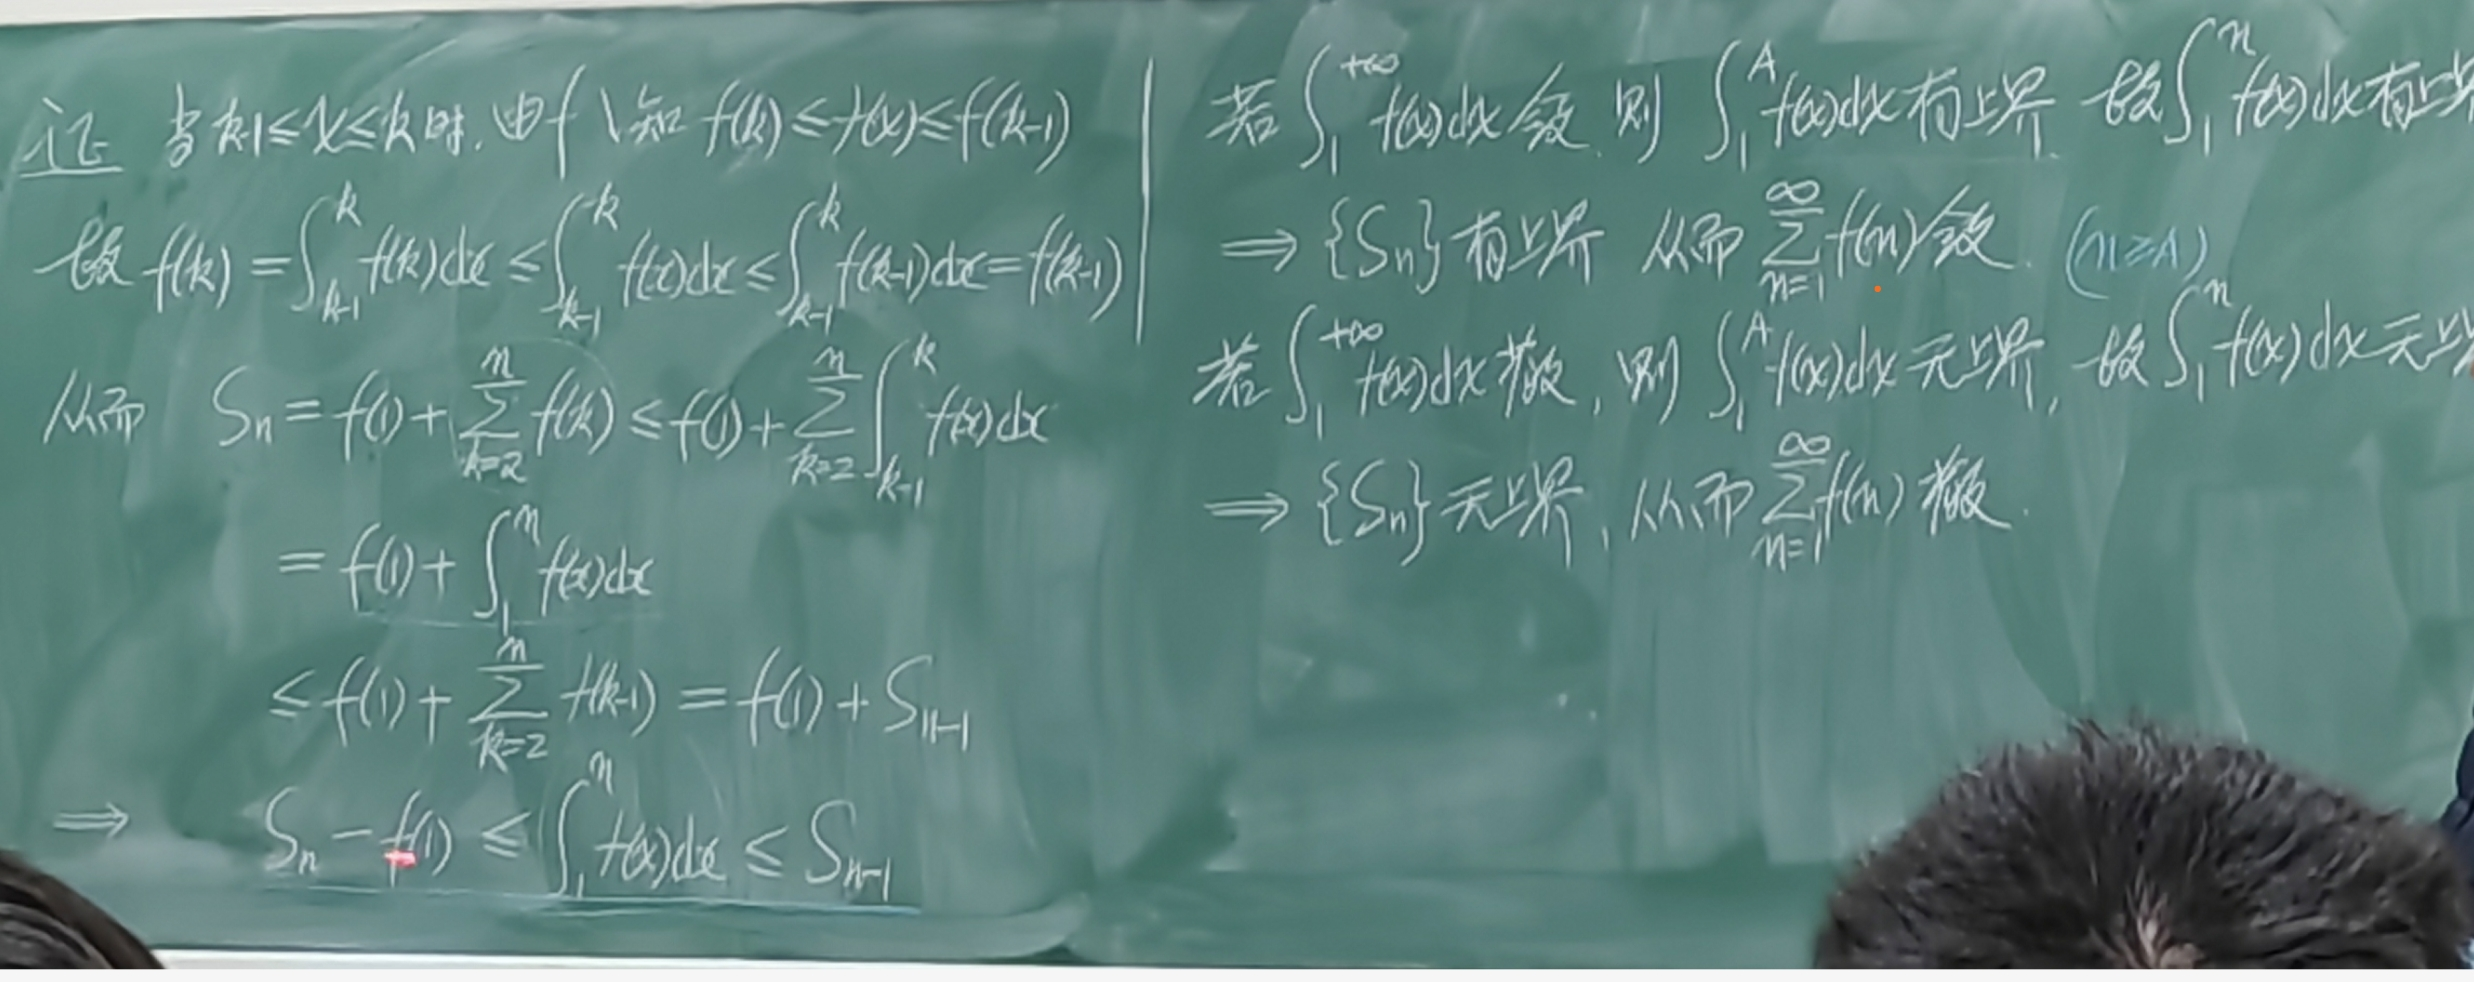 证 当 k-1≤x≤k 时, 由 f ↘ 知 f(k)≤f(x)≤f(k-1)
故 f(k) = ∫_{k-1}^{k} f(k)dx ≤ ∫_{k-1}^{k} f(x)dx ≤ ∫_{k-1}^{k} f(k-1)dx = f(k-1)
从而 S_n = f(1) + ∑_{k=2}^{n} f(k) ≤ f(1) + ∑_{k=2}^{n} ∫_{k-1}^{k} f(x)dx
= f(1) + ∫_{1}^{n} f(x)dx
≤ f(1) + ∑_{k=2}^{n} f(k-1) = f(1) + S_{n-1}
⇒ S_n - f(1) ≤ ∫_{1}^{n} f(x)dx ≤ S_{n-1}
若 ∫_{1}^{+∞} f(x)dx 敛, 则 ∫_{1}^{A} f(x)dx 有上界. 故 ∫_{1}^{n} f(x)dx 有上界
⇒ {S_n} 有上界 从而 ∑_{n=1}^{∞} f(n) 敛. (n≥A)
若 ∫_{1}^{+∞} f(x)dx 散, 则 ∫_{1}^{A} f(x)dx 无上界, 故 ∫_{1}^{n} f(x)dx 无上
⇒ {S_n} 无上界, 从而 ∑_{n=1}^{∞} f(n) 散.